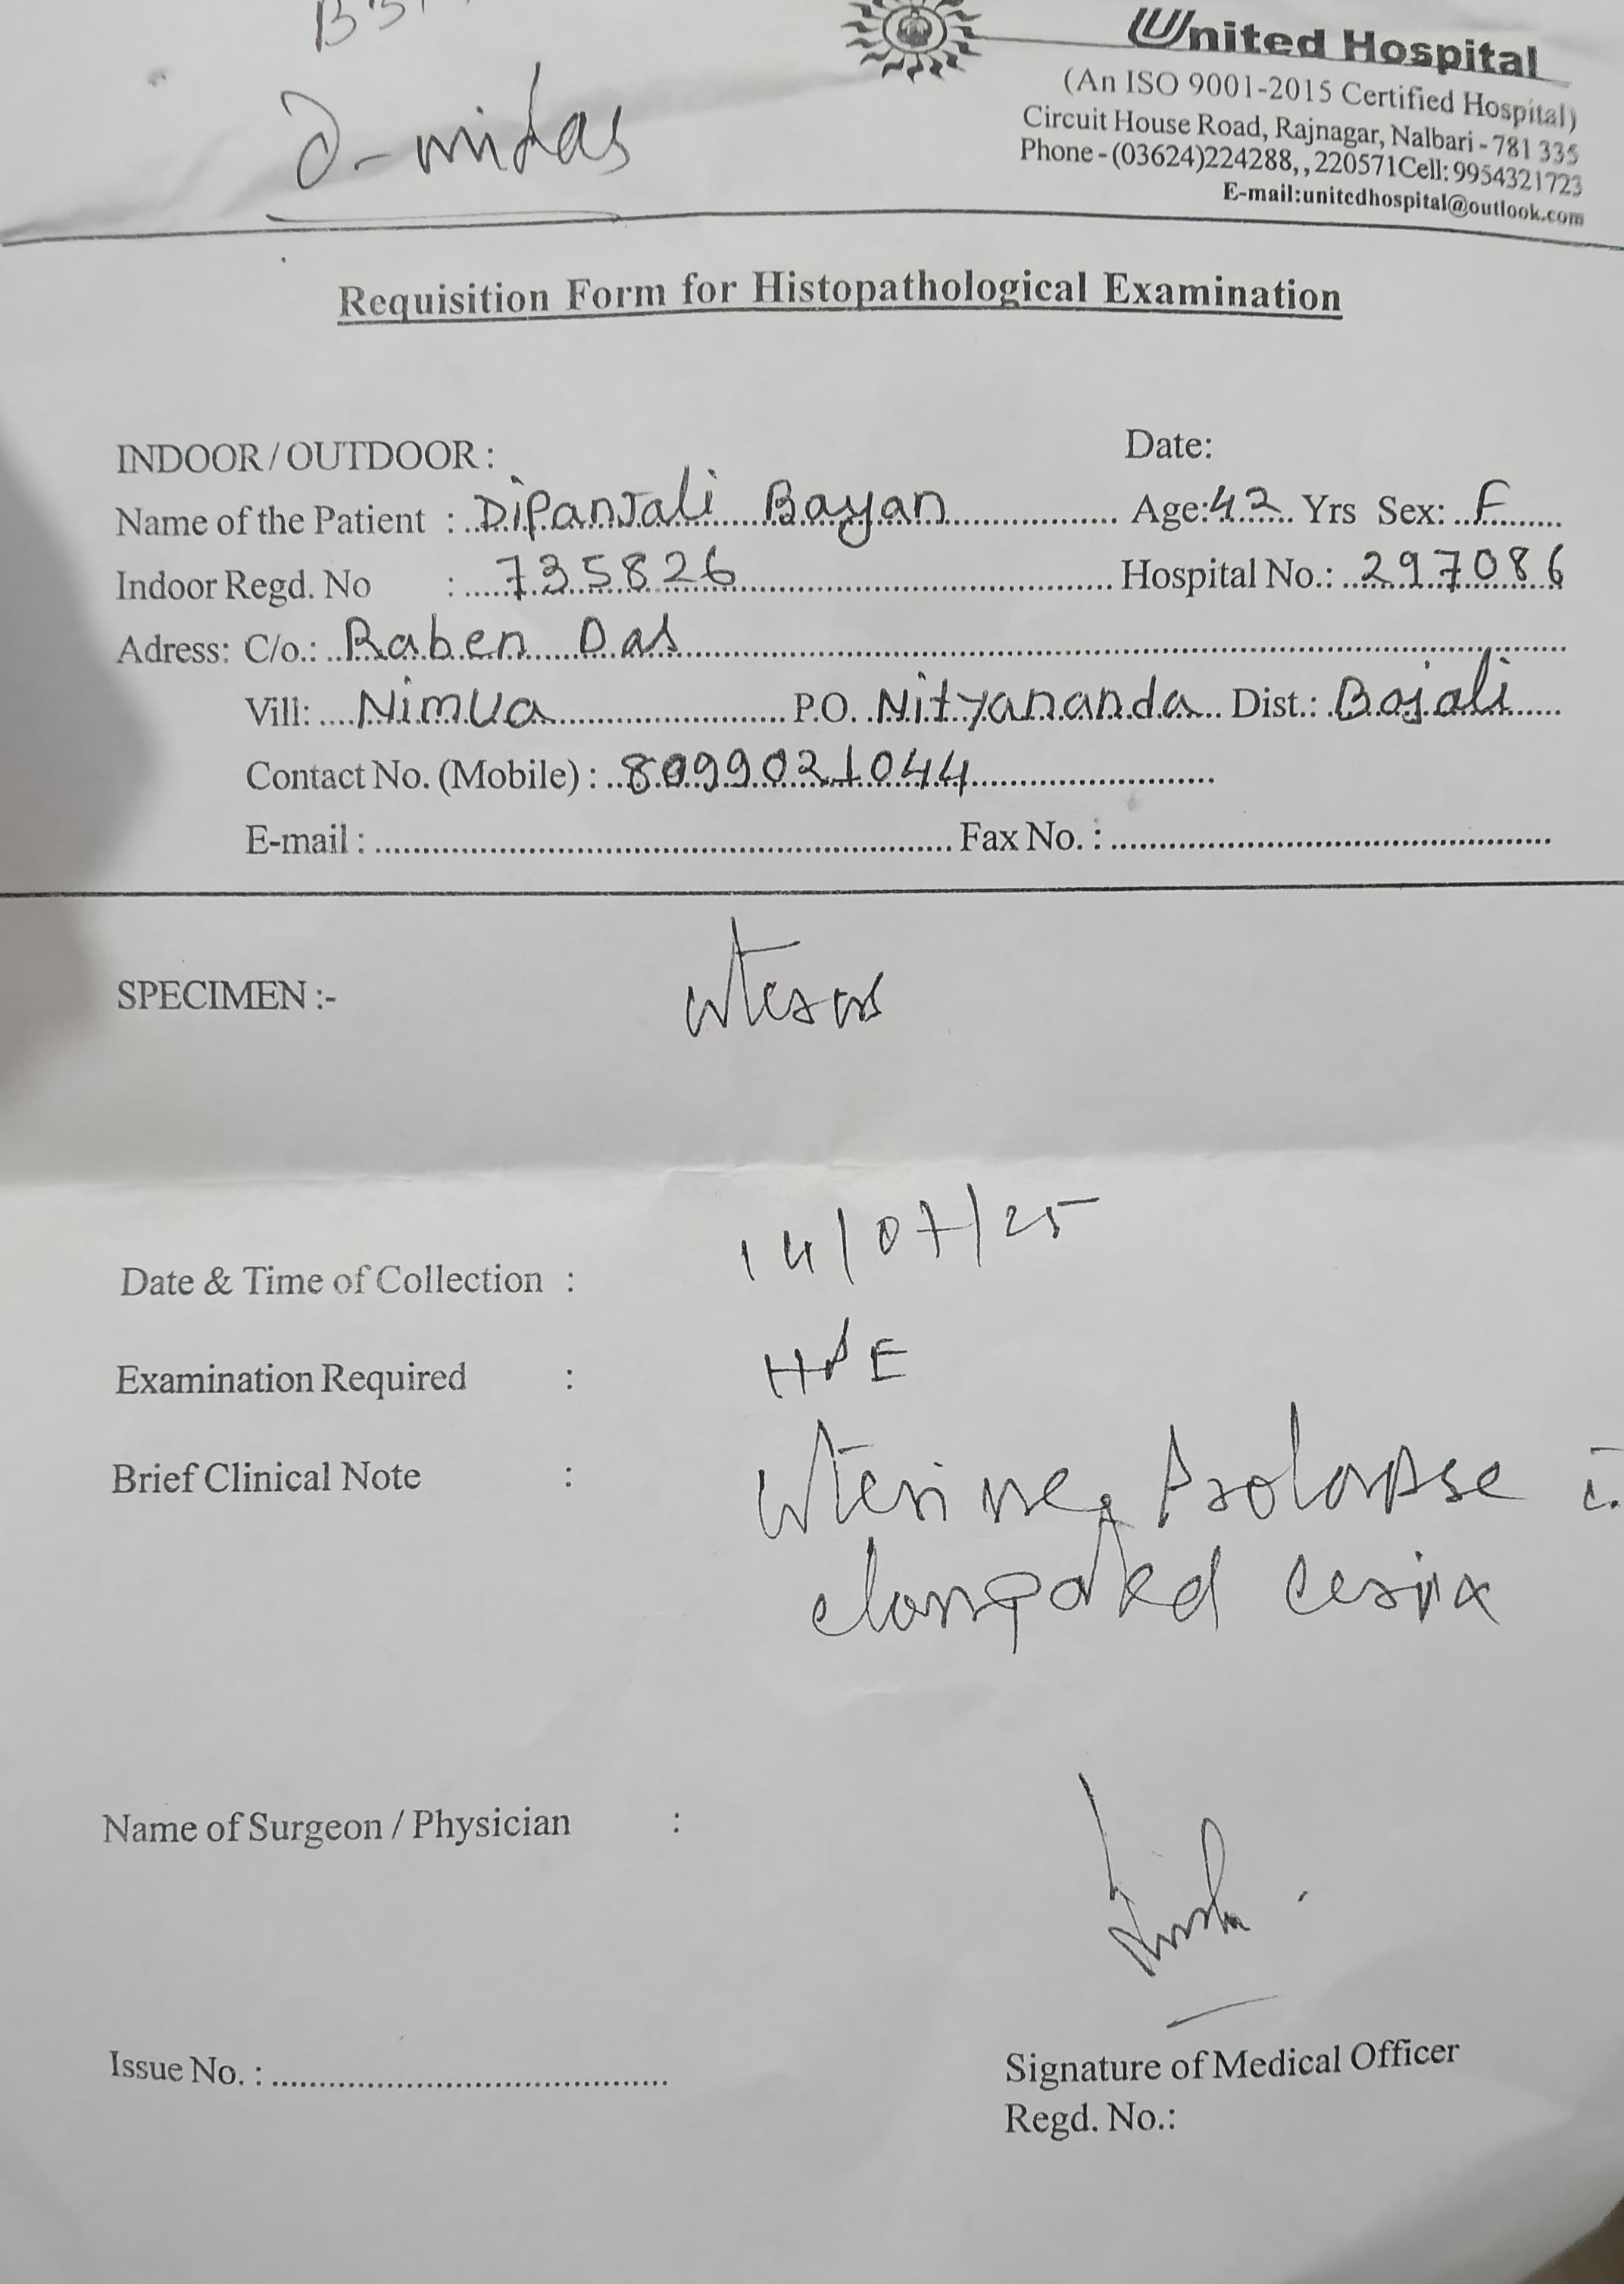 ∂-midas
United Hospital
(An ISO 9001-2015 Certified Hospital)
Circuit House Road, Rajnagar, Nalbari - 781 335
Phone - (03624)224288,, 220571Cell: 9954321723
E-mail:unitedhospital@outlook.com
Requisition Form for Histopathological Examination
INDOOR / OUTDOOR : Date:
Name of the Patient : Dipanjali Bayan Age: 42 Yrs Sex: F
Indoor Regd. No : 735826 Hospital No.: 297086
Adress: C/o.: Raben Das
Vill: Nimua P.O. Nityananda Dist.: Bajali
Contact No. (Mobile) : 8099021044
E-mail : Fax No. :
SPECIMEN :- uterus
Date & Time of Collection : 14/07/25
Examination Required : HPE
Brief Clinical Note : uterine prolapse c̄
elongated cervix
Name of Surgeon / Physician :
Issue No. : Signature of Medical Officer
Regd. No.: